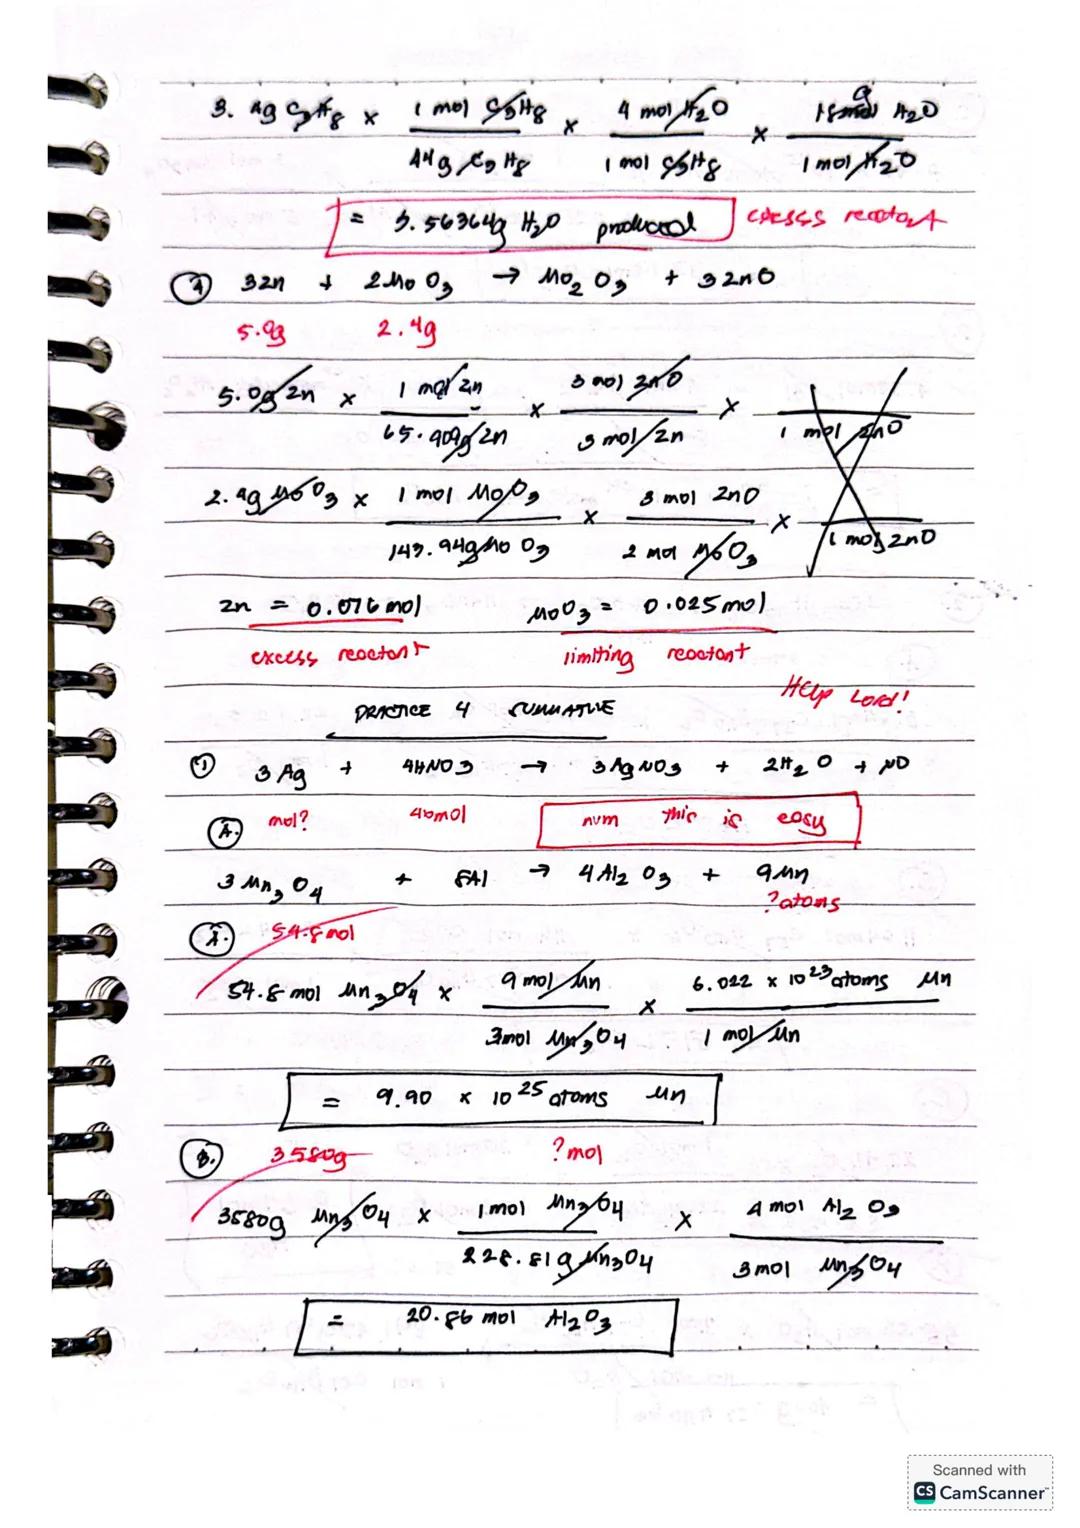 3. 4g C3H8 x 1 mol C3H8 / 44g C3H8 x 4 mol H2O / 1 mol C3H8 x 18 g H2O / 1 mol H2O
= 3.56364g H2O produced excess reactant
④ 3Zn + 2MoO3 → Mo2O3 + 3ZnO
5.0g 2.4g
5.0g Zn x 1 mol Zn / 65.409g Zn x 3 mol ZnO / 3 mol Zn x 1 mol ZnO
2.4g MoO3 x 1 mol MoO3 / 143.94g MoO3 x 3 mol ZnO / 2 mol MoO3 x 1 mol ZnO
Zn = 0.076 mol MoO3 = 0.025 mol
excess reactant limiting reactant
Help Lord!
PRACTICE 4 SUMMATIVE
① 3 Ag + 4HNO3 → 3AgNO3 + 2H2O + NO
Ⓐ. mol? 40mol num this is easy
3 Mn3O4 + 8Al → 4Al2O3 + 9Mn
?atoms
Ⓐ. 54.8mol
54.8 mol Mn3O4 x 9 mol Mn / 3mol Mn3O4 x 6.022 x 10^23 atoms Mn / 1 mol Mn
= 9.90 x 10^25 atoms Mn
Ⓑ. 3580g ?mol
3580g Mn3O4 x 1 mol Mn3O4 / 228.81g Mn3O4 x 4 mol Al2O3 / 3 mol Mn3O4
= 20.86 mol Al2O3
Scanned with
CS CamScanner